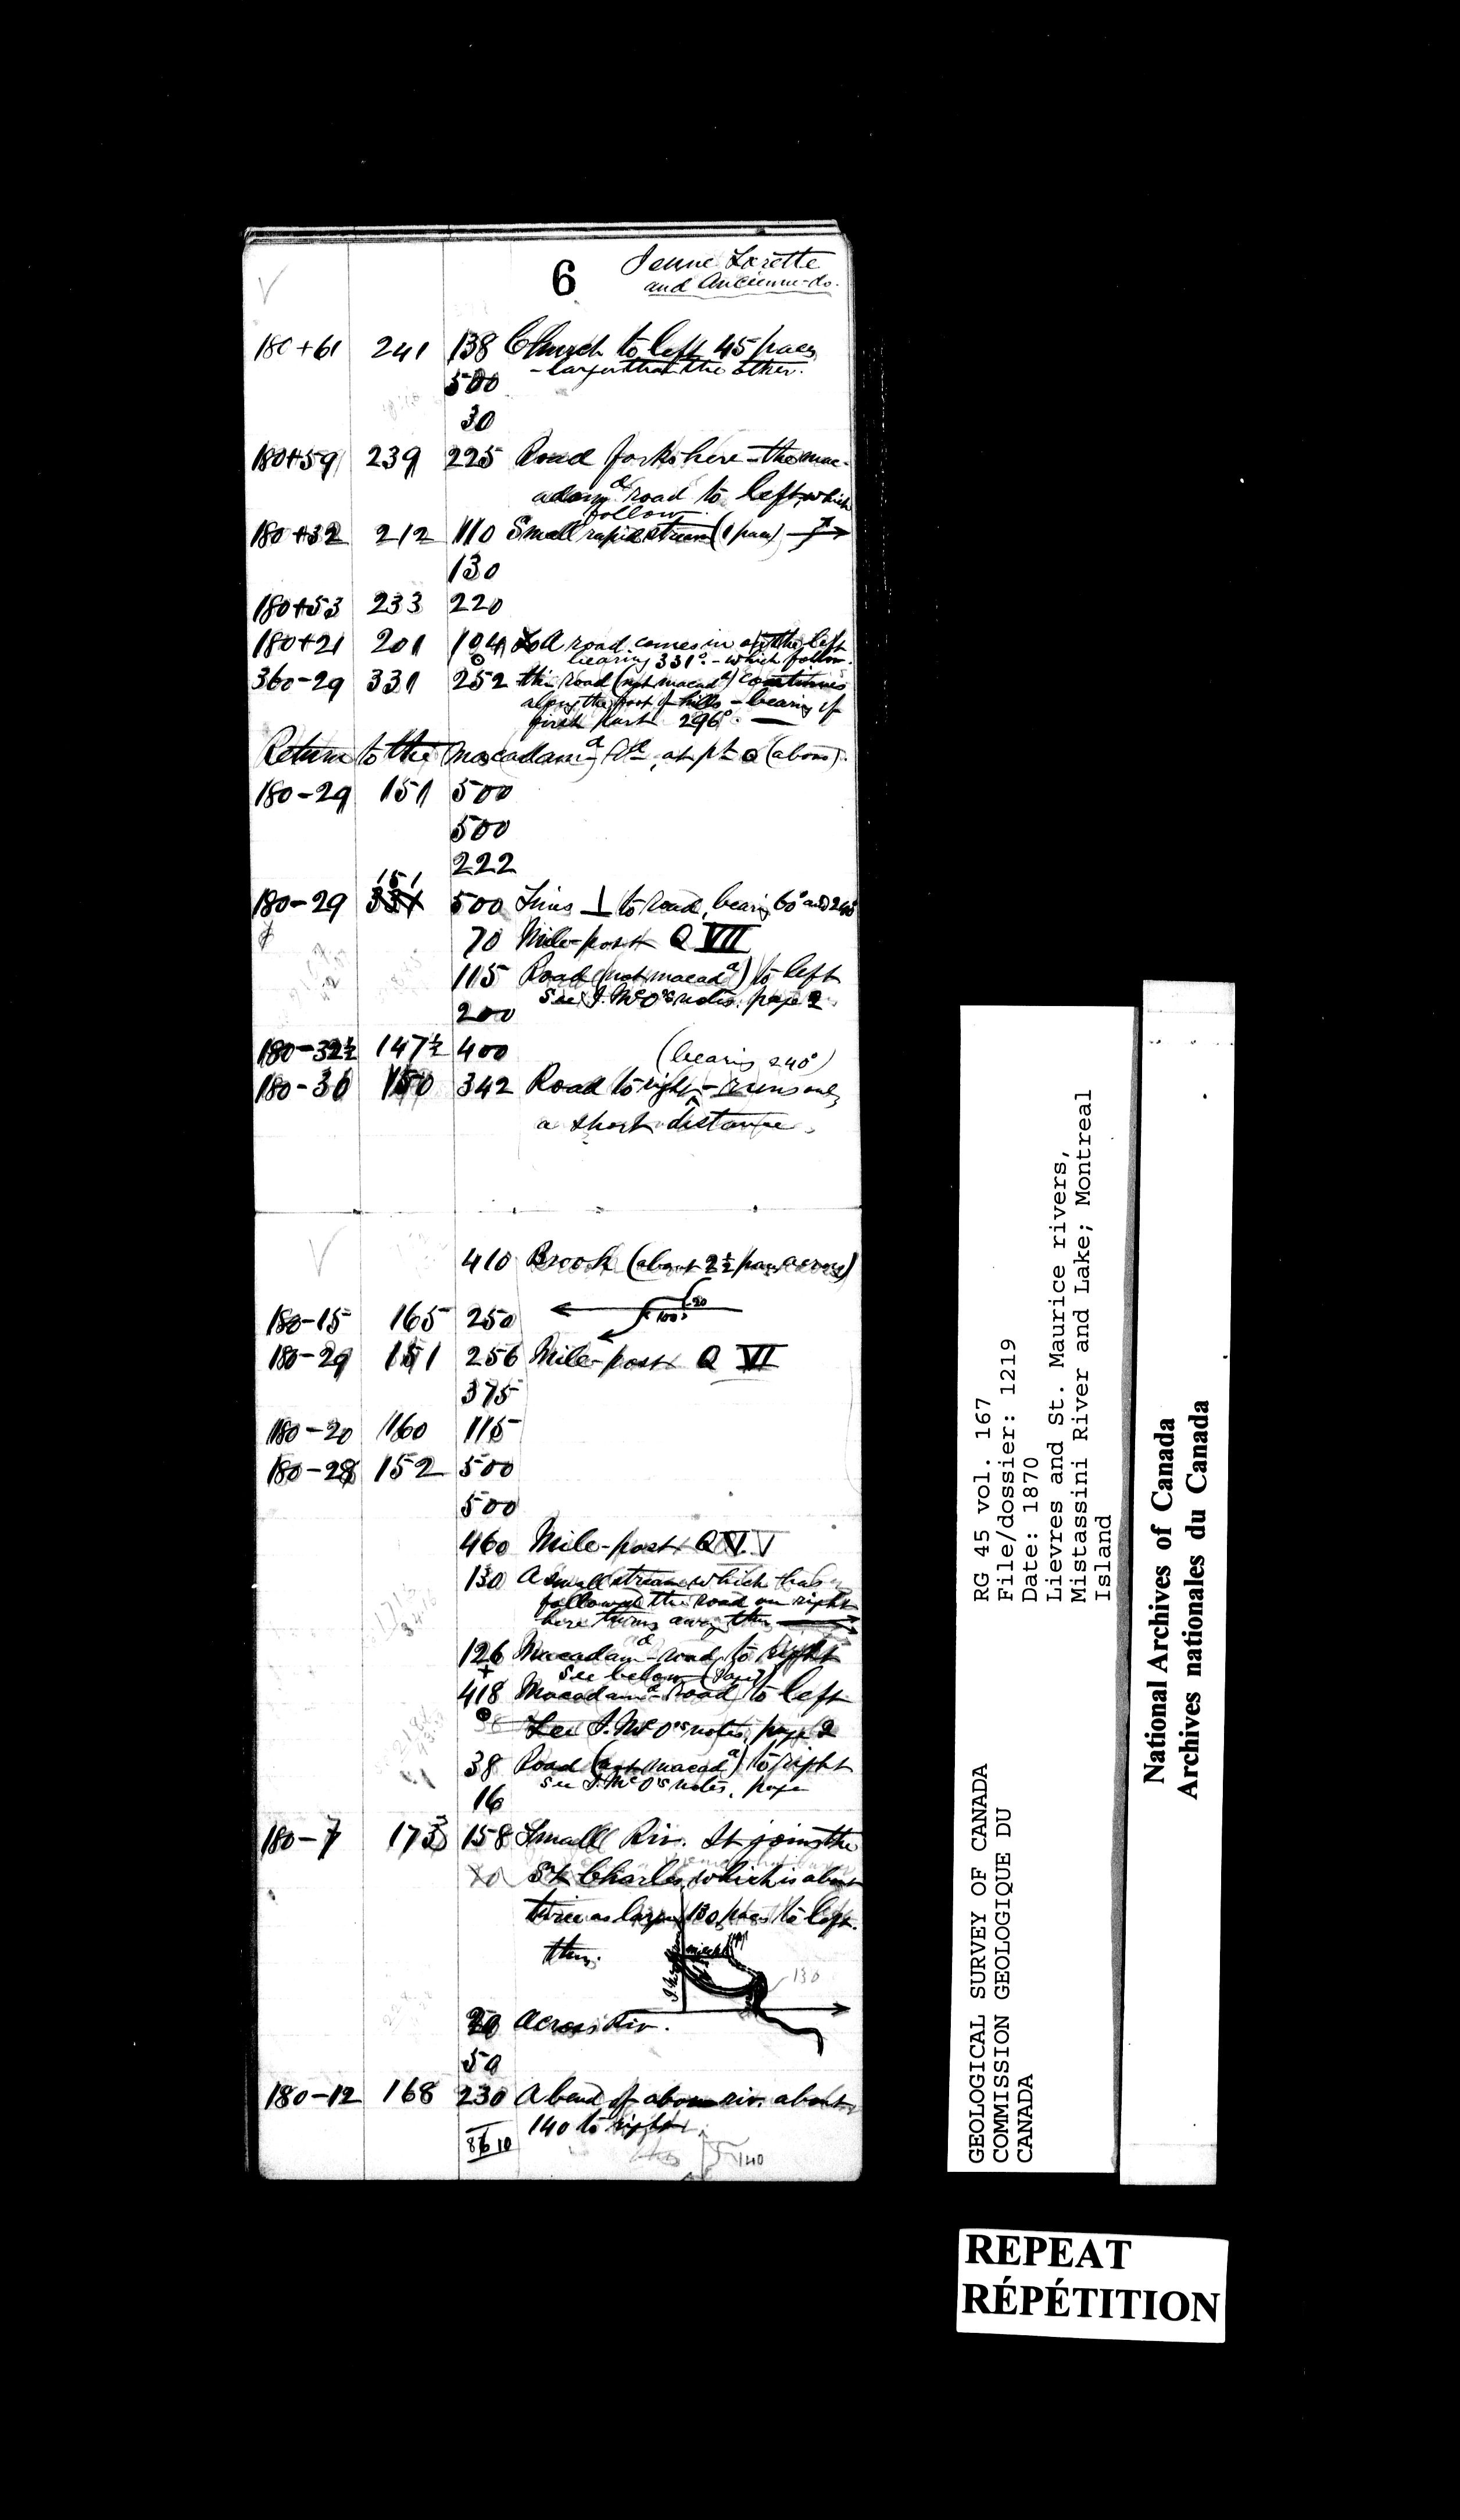 6
Jeune Lorette
and Ancienne-do.
180+61 241 138 Church to left 45 paces
- larger than the other.
500
30
180+59 239 225 Road forks here - the mac-
adamd road to left, which
follow.
180+32 212 110 Small rapid stream (1 pace)
130
180+53 233 220
180+21 201 104 A road comes in on the left
bearing 331° - which follow.
360-29 331 252 this road (not macadd) continues
along the foot of hills - bearing of
first part 296°
Return to the macadamd Rd, at pt ⊙ (above).
180-29 151 500
500
222
151
180-29 331 500 Lines ⊥ to road, bearing 60° and 240°
70 Mile-post Q VII
115 Road (not macadd) to left
see J. McO's notes, page 2
200
180-32½ 147½ 400
(bearing 240°)
180-30 150 342 Road to right - runs only
a short distance.
410 Brook (about 2½ paces across)
20
100
180-15 165 250
180-29 151 256 Mile-post Q VI
375
180-20 160 115
180-28 152 500
500
460 Mile-post Q V
130 A small stream which has
followed the road on right
here turns away thus
126 Macadamd road to right
see below
418 Macadamd road to left
See J. McO's notes, page 2
38 Road (not macadd) to right
see J. McO's notes, page
16
180-7 173 158 Small Riv. It joins the
St Charles, which is about
twice as large 130 paces to left.
thus.
130
20 across Riv.
50
180-12 168 230 A bend of above riv. about
140 to right
8610
140
RG 45 vol. 167
File/dossier: 1219
Date: 1870
Lievres and St. Maurice rivers,
Mistassini River and Lake; Montreal
Island
GEOLOGICAL SURVEY OF CANADA
COMMISSION GEOLOGIQUE DU
CANADA
National Archives of Canada
Archives nationales du Canada
REPEAT
RÉPÉTITION